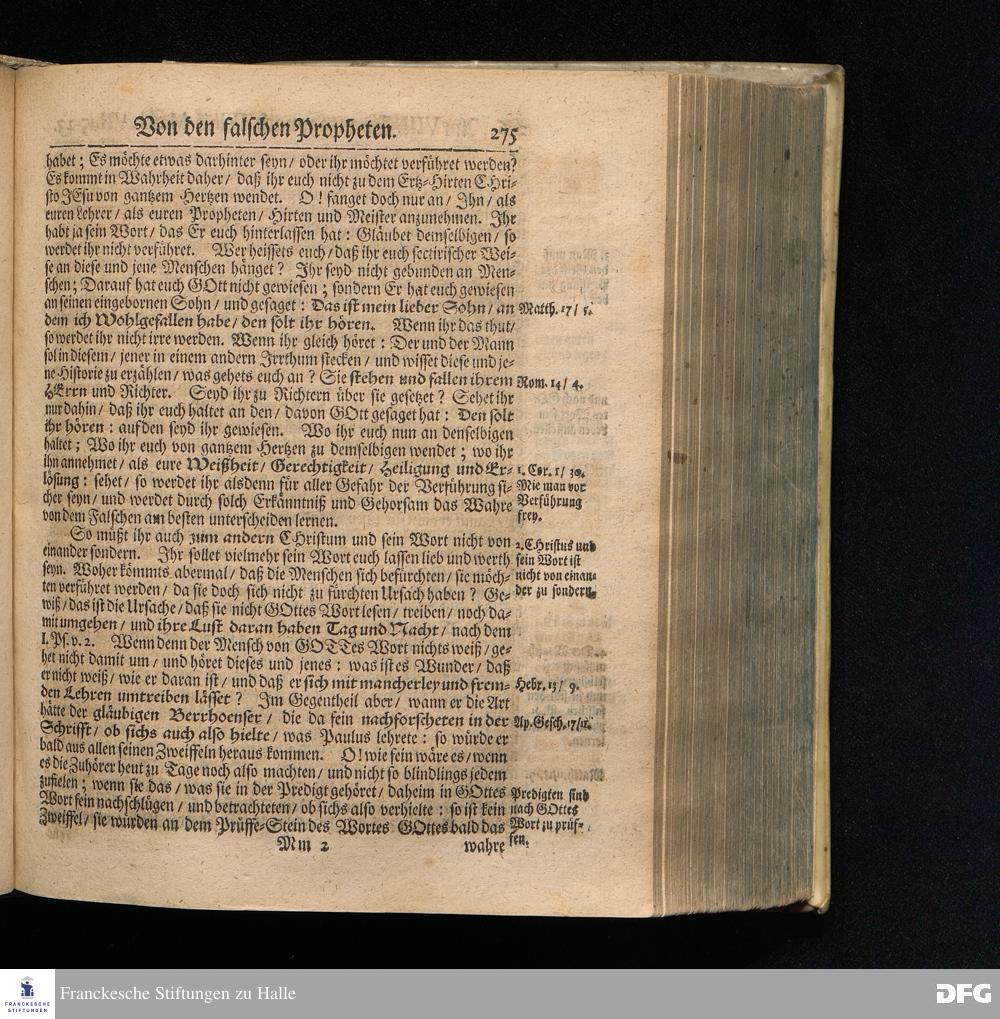 Von den falschen Propheten. 275
habet ; Es möchte etwas darhinter seyn / oder ihr möchtet verführet werden?
Es kommt in Wahrheit daher / daß ihr euch nicht zu dem Ertz-Hirten CHri-
sto JEsu von gantzem Hertzen wendet. O! fanget doch nur an / Ihn / als
euren Lehrer / als euren Propheten / Hirten und Meister anzunehmen. Ihr
habt ja sein Wort / das Er euch hinterlassen hat : Gläubet demselbigen / so
werdet ihr nicht verführet. Wer heissets euch / daß ihr euch sectirischer Wei-
se an diese und jene Menschen hänget ? Ihr seyd nicht gebunden an Men-
schen ; Darauf hat euch GOtt nicht gewiesen ; sondern Er hat euch gewiesen
an seinen eingebornen Sohn / und gesaget : Das ist mein lieber Sohn / an
dem ich Wohlgefallen habe / den solt ihr hören. Wenn ihr das thut /
so werdet ihr nicht irre werden. Wenn ihr gleich höret : Der und der Mann
sol in diesem / jener in einem andern Irrthum stecken / und wisset diese und je-
ne Historie zu erzählen / was gehets euch an ? Sie stehen und fallen ihrem
HErrn und Richter. Seyd ihr zu Richtern über sie gesetzet ? Sehet ihr
nur dahin / daß ihr euch haltet an den / davon GOtt gesaget hat : Den solt
ihr hören : auf den seyd ihr gewiesen. Wo ihr euch nun an denselbigen
haltet ; Wo ihr euch von gantzem Hertzen zu demselbigen wendet ; wo ihr
ihn annehmet / als eure Weißheit / Gerechtigkeit / Heiligung und Er-
lösung : sehet / so werdet ihr alsdenn für aller Gefahr der Verführung si-
cher seyn / und werdet durch solch Erkänntniß und Gehorsam das Wahre
von dem Falschen am besten unterscheiden lernen.
So müßt ihr auch zum andern CHristum und sein Wort nicht von
einander sondern. Ihr sollet vielmehr sein Wort euch lassen lieb und werth
seyn. Woher kömmts abermal / daß die Menschen sich befürchten / sie möch-
ten verführet werden / da sie doch sich nicht zu fürchten Ursach haben ? Ge-
wiß / das ist die Ursache / daß sie nicht GOttes Wort lesen / treiben / noch da-
mit umgehen / und ihre Lust daran haben Tag und Nacht / nach dem
I. Ps. v. 2. Wenn denn der Mensch von GOTTes Wort nichts weiß / ge-
het nicht damit um / und höret dieses und jenes : was ist es Wunder / daß
er nicht weiß / wie er daran ist / und daß er sich mit mancherley und frem-
den Lehren umtreiben lässet ? Im Gegentheil aber / wann er die Art
hätte der gläubigen Berrhoenser / die da fein nachforscheten in der
Schrifft / ob sichs auch also hielte / was Paulus lehrete : so würde er
bald aus allen seinen Zweiffeln heraus kommen. O! wie fein wäre es / wenn
es die Zuhörer heut zu Tage noch also machten / und nicht so blindlings jedem
zufielen ; wenn sie das / was sie in der Predigt gehöret / daheim in GOttes
Wort fein nachschlügen / und betrachteten / ob sichs also verhielte : so ist kein
Zweiffel / sie würden an dem Prüffe-Stein des Wortes GOttes bald das
Mm 2 wahre
Matth. 17 / 5.
Rom. 14 / 4.
1. Cor. 1 / 30.
Wie man vor
Verführung
frey.
2. CHristus und
sein Wort ist
nicht von einan-
der zu sondern.
Hebr. 13 / 9.
Ap. Gesch. 17 / 11.
Predigten sind
nach GOttes
Wort zu prüf-
fen.
FRANCKESCHE
STIFTUNGEN
Franckesche Stiftungen zu Halle
DFG